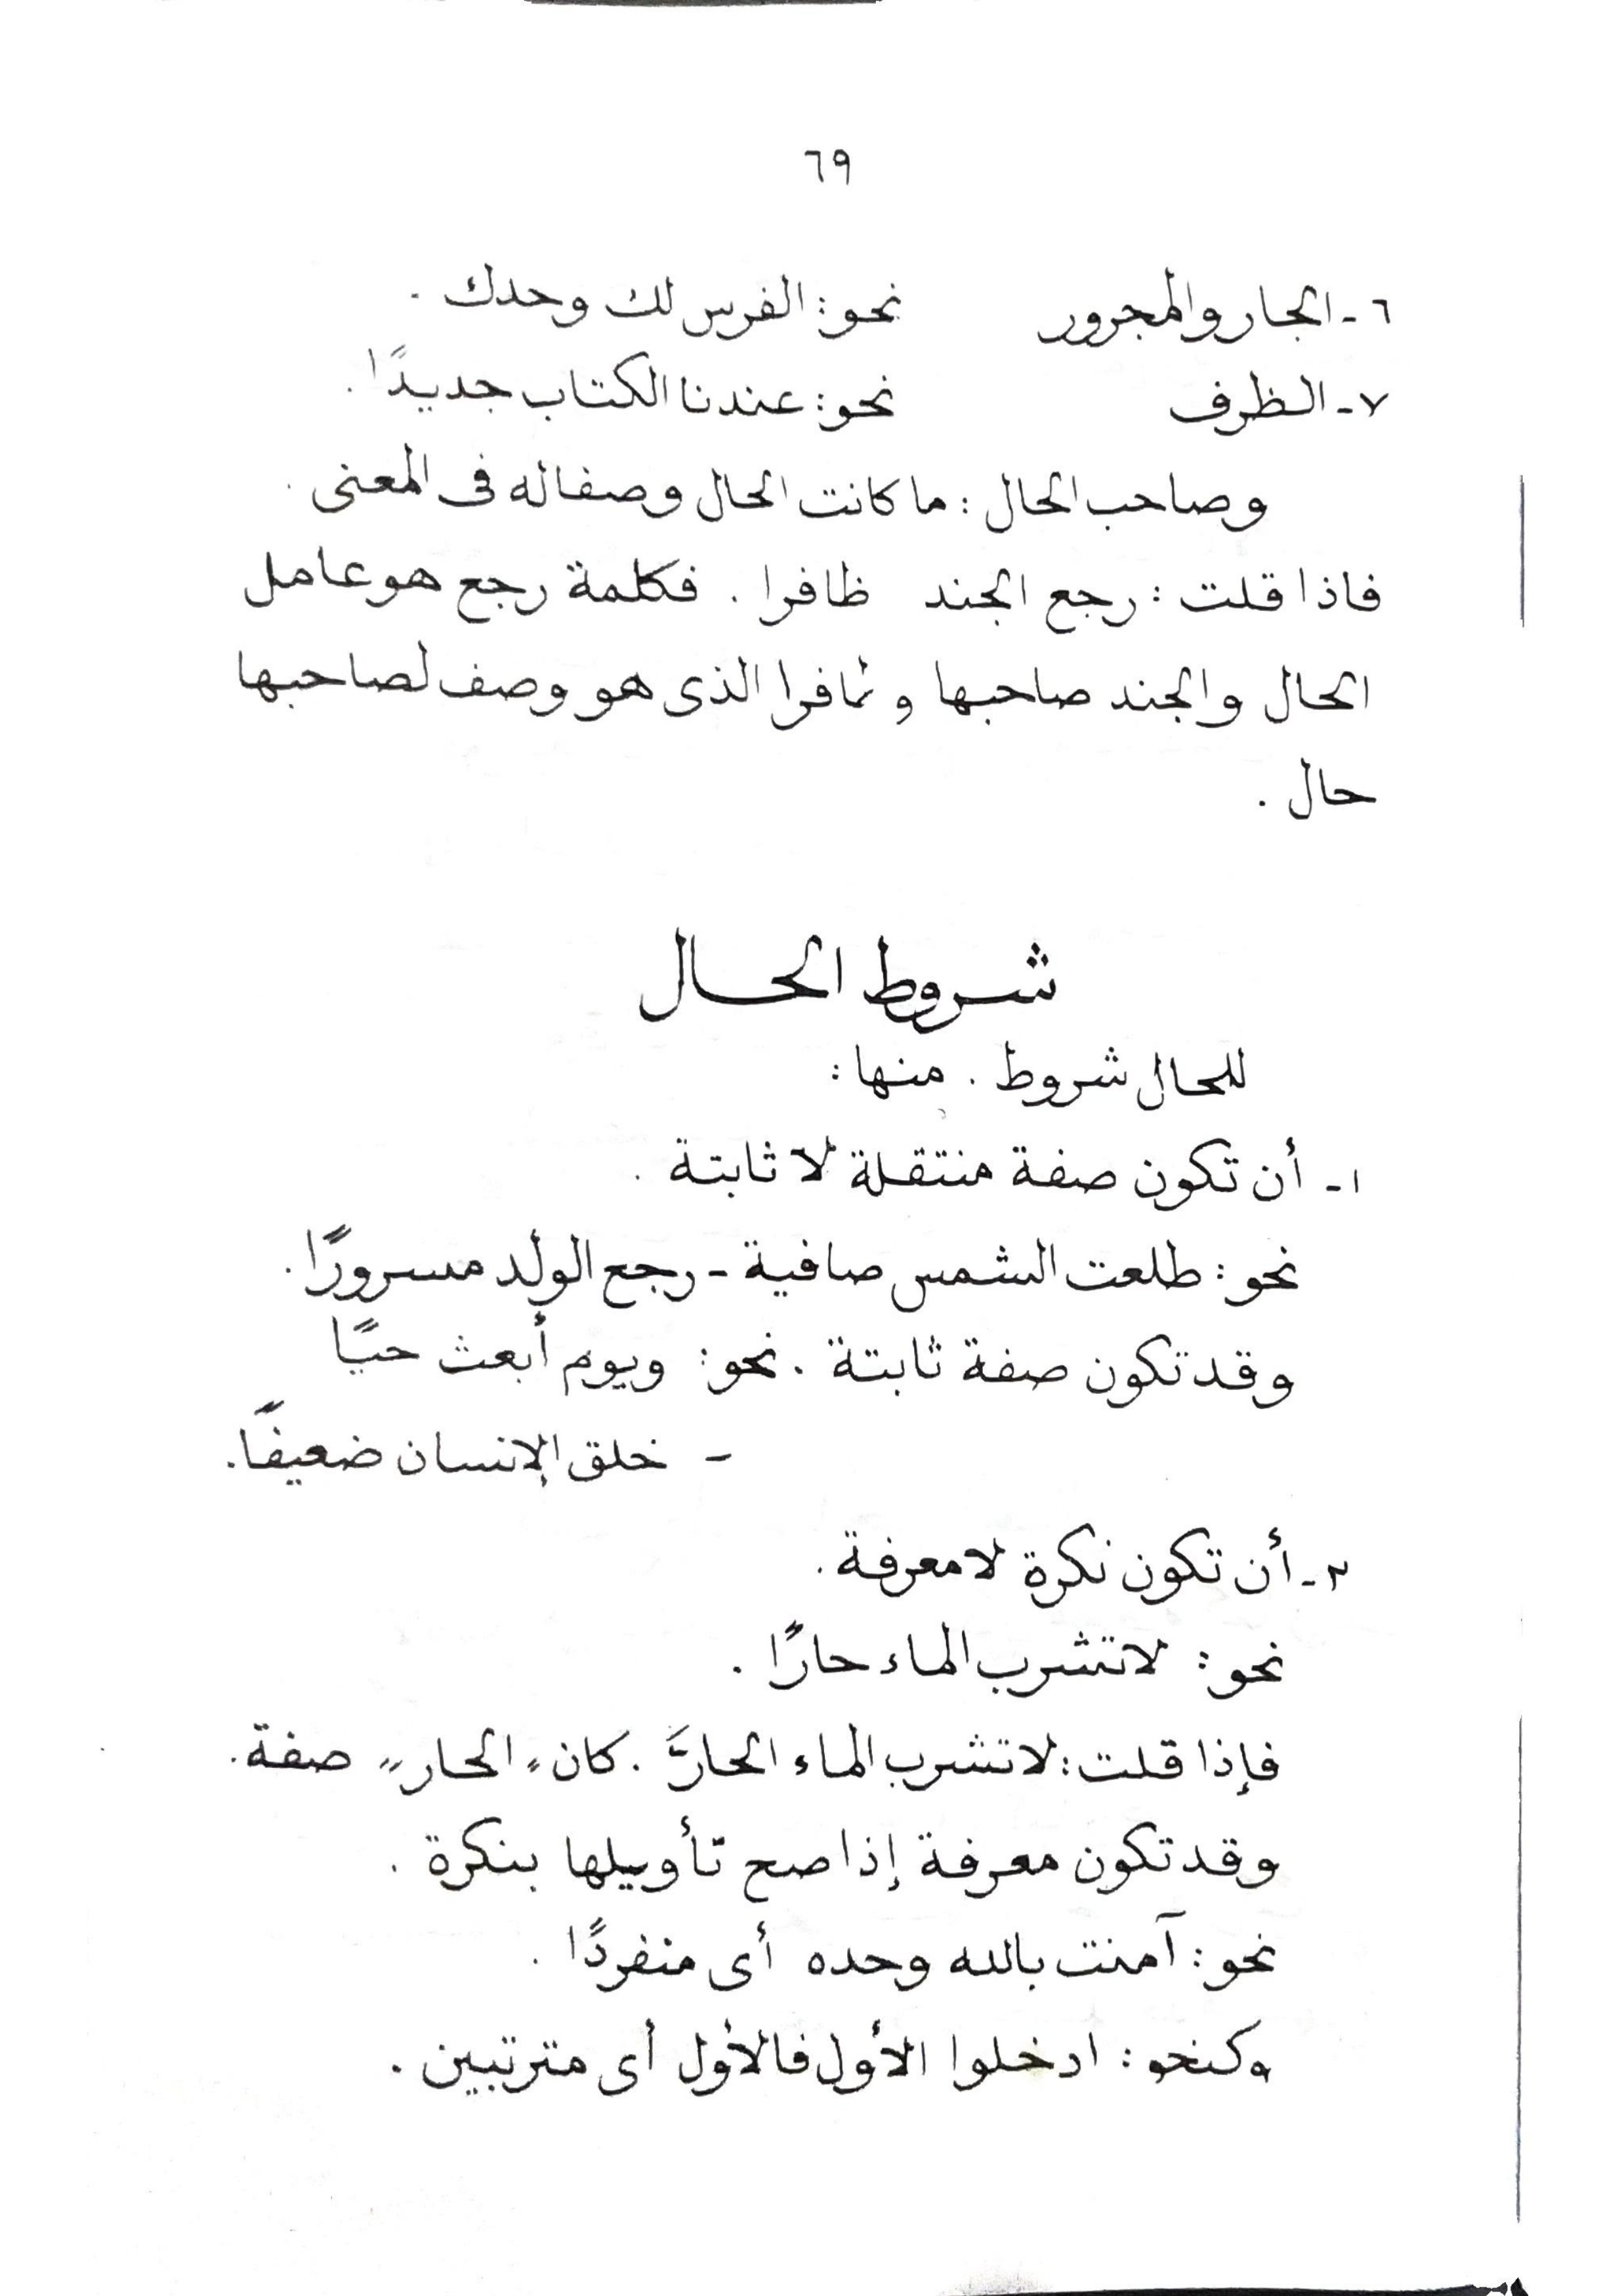 ٦٩
٦ - الجار والمجرور نحو: الفرس لك وحدك.
٧ - الظرف نحو: عندنا الكتاب جديدًا.
وصاحب الحال: ما كانت الحال وصفا له فى المعنى.
فاذا قلت: رجع الجند ظافرا. فكلمة رجع هو عامل
الحال والجند صاحبها و ظافرا الذى هو وصف لصاحبها
حال.
شروط الحال
للحال شروط. منها:
١ - أن تكون صفة منتقلة لا ثابتة.
نحو: طلعت الشمس صافية - رجع الولد مسرورًا.
وقد تكون صفة ثابتة. نحو: ويوم أبعث حيًا
- خلق الإنسان ضعيفًا.
٢ - أن تكون نكرة لا معرفة.
نحو: لا تشرب الماء حارًا.
فإذا قلت: لا تشرب الماء الحارَّ. كان "الحار" صفة.
وقد تكون معرفة إذا صح تأويلها بنكرة.
نحو: آمنت بالله وحده أى منفردًا.
وكنحو: ادخلوا الأول فالأول أى مترتبين.